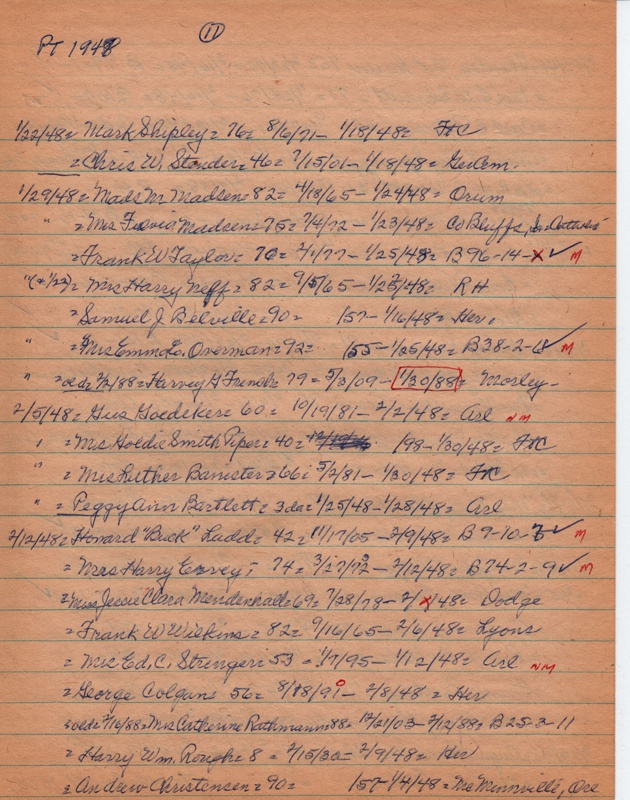 PT 1948
11
1/22/48 = Mark Shipley = 76 = 8/6/71 - 1/18/48 = FtC
= Chris W. Stander = 46 = 7/15/01 - 1/18/48 = GerCem.
1/29/48 = Mads M Madsen = 82 = 4/18/65 - 1/24/48 = Orum
" = Mrs Madsen = 75 = 7/4/72 - 1/23/48 = Co Bluffs, Ia
= Frank W Taylor = 70 = 2/1/77 - 1/25/48 = B96-14-x ✓ M
"(& 1/22) = Mrs Harry Neff = 82 = 9/5/65 - 1/22/48 = RH
= Samuel J. Belville = 90 = /57 - 1/16/48 = Her.
" = Mrs Emma L. Overman = 92 = /55 - 1/25/48 = B38-2-6 ✓ M
" = 2/2/88 = Harvey G French = 79 = 5/3/09 - 1/30/88 = Mosley
2/5/48 = Gus Goedeker = 60 = 10/19/81 - 2/2/48 = Arl NM
" = Ms Goldie Smith Piper = 40 = /98 - 1/30/48 = FtC
" = Mrs Luther Banister = 66 = 5/2/81 - 1/30/48 = FtC
" = Peggy Ann Bartlett = 3da = 1/25/48 - 1/28/48 = Arl
2/12/48 = Howard "Buck" Ladd = 42 = 11/17/05 - 2/9/48 = B9-10-7 ✓ M
= Mrs Harry = 74 = 3/27/73 - 2/12/48 = B74-2-9 ✓ M
= Miss Jessie Clara Mendenhall = 69 = 7/28/78 - 2/x/48 = Dodge
= Frank W Wilkins = 82 = 9/16/65 - 2/6/48 = Lyons
= Mrs Ed. C. Stringer = 53 = 1/7/95 - 1/12/48 = Arl NM
= George Colgan = 56 = 8/18/91 - 2/8/48 = Her
= 2/16/88 = Mrs Catherine Rathmann = 88 = 12/21/03 - 2/12/88 = B25-3-11
= Harry Wm. Rough = 8 = 2/15/30 = 2/9/48 = Her
= Andrew Christensen = 90 = /57 - 1/4/48 = McMinnville, Ore